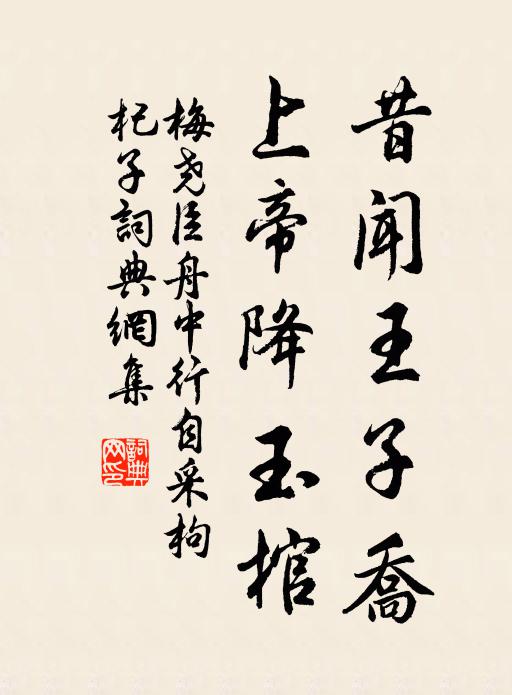 昔闻王子乔
上帝降玉棺
梅尧臣舟中行自采枸
杞子詞典網集
詞典網印